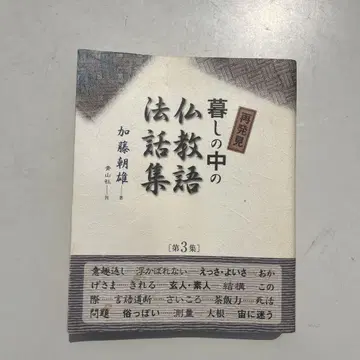 再発見
暮しの中の
仏教語
法話集
加藤朝雄 著
青山社 刊
［第3集］
意趣返し 浮かばれない えっさ・よいさ おか
げさま きれる 玄人・素人 結構 この
際 言語道断 さいころ 茶飯力 死活
問題 俗っぽい 測量 大根 宙に迷う